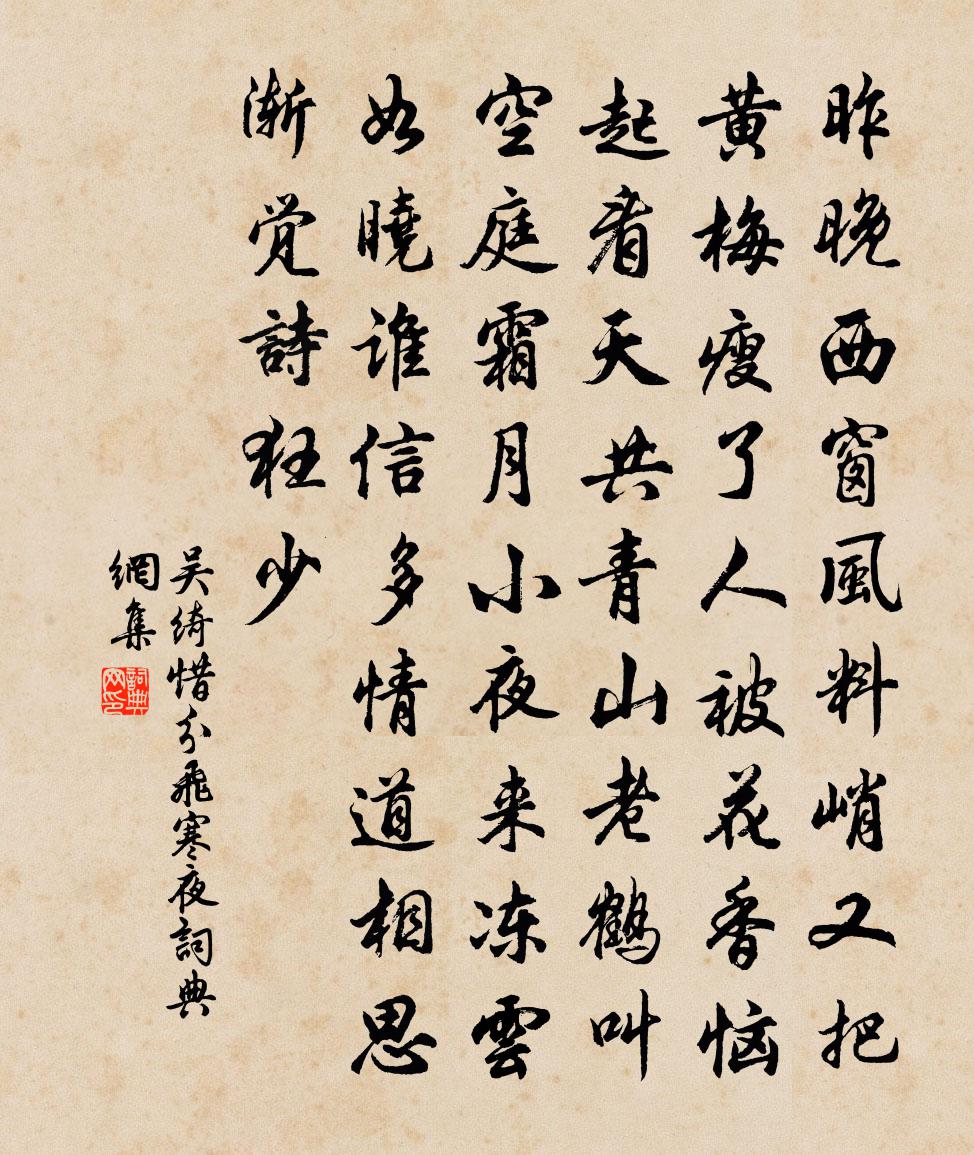 昨晚西窗風料峭又把
黃梅瘦了人被花香恼
起看天共青山老鶴叫
空庭霜月小夜来冻雲
如曉谁信多情道相思
渐觉詩狂少
吴绮惜分飛寒夜詞典
網集
詞典
网印